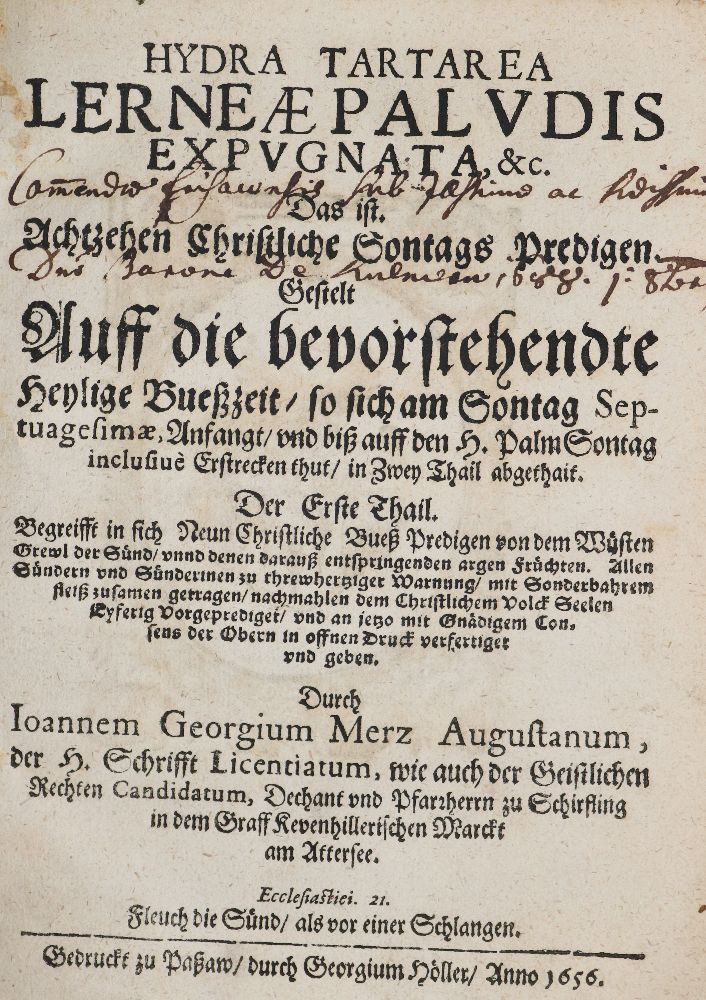 HYDRA TARTAREA
LERNEÆ PALVDIS
EXPVGNATA, &c.
Das ist.
Achtzehen Christliche Sontags Predigen.
Gestelt
Auff die bevorstehendte
Heylige Bueßzeit / so sich am Sontag Sep-
tuagesimæ, Anfangt / vnd biß auff den H. PalmSontag
inclusivè Erstrecken thut / in Zwey Thail abgethait.
Der Erste Thail.
Begreifft in sich Neun Christliche Bueß Predigen von dem Wüsten
Grewl der Sünd / vnnd denen darauß entspringenden argen Früchten. Allen
Sündern vnd Sünderinen zu threwhertziger Warnung / mit Sonderbahrem
fleiß zusamen getragen / nachmahlen dem Christlichem Volck Seelen
Eyferig Vorgeprediget / vnd an jetzo mit Gnädigem Con-
sens der Obern in offnen Druck verfertiget
vnd geben.
Durch
Ioannem Georgium Merz Augustanum,
der H. Schrifft Licentiatum, wie auch der Geistlichen
Rechten Candidatum, Dechant vnd Pfarrherrn zu Schirfling
in dem Graff Kevenhillerischen Marckt
am Attersee.
Ecclesiastici. 21.
Fleuch die Sünd / als vor einer Schlangen.
Gedruckt zu Paßaw / durch Georgium Höller / Anno 1656.